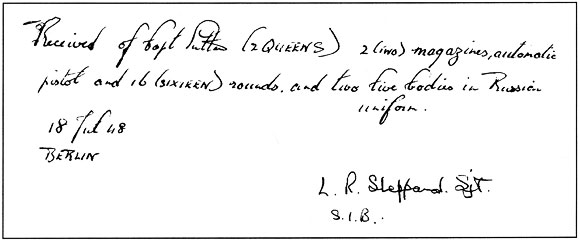 Received of Capt Sutton (2 QUEENS) 2 (two) magazines, automatic
pistol and 16 (SIXTEEN) rounds. and two live bodies in Russian
uniform.
18 Jul 48
BERLIN
L. R. Sheppard. Sjt.
S.I.B.